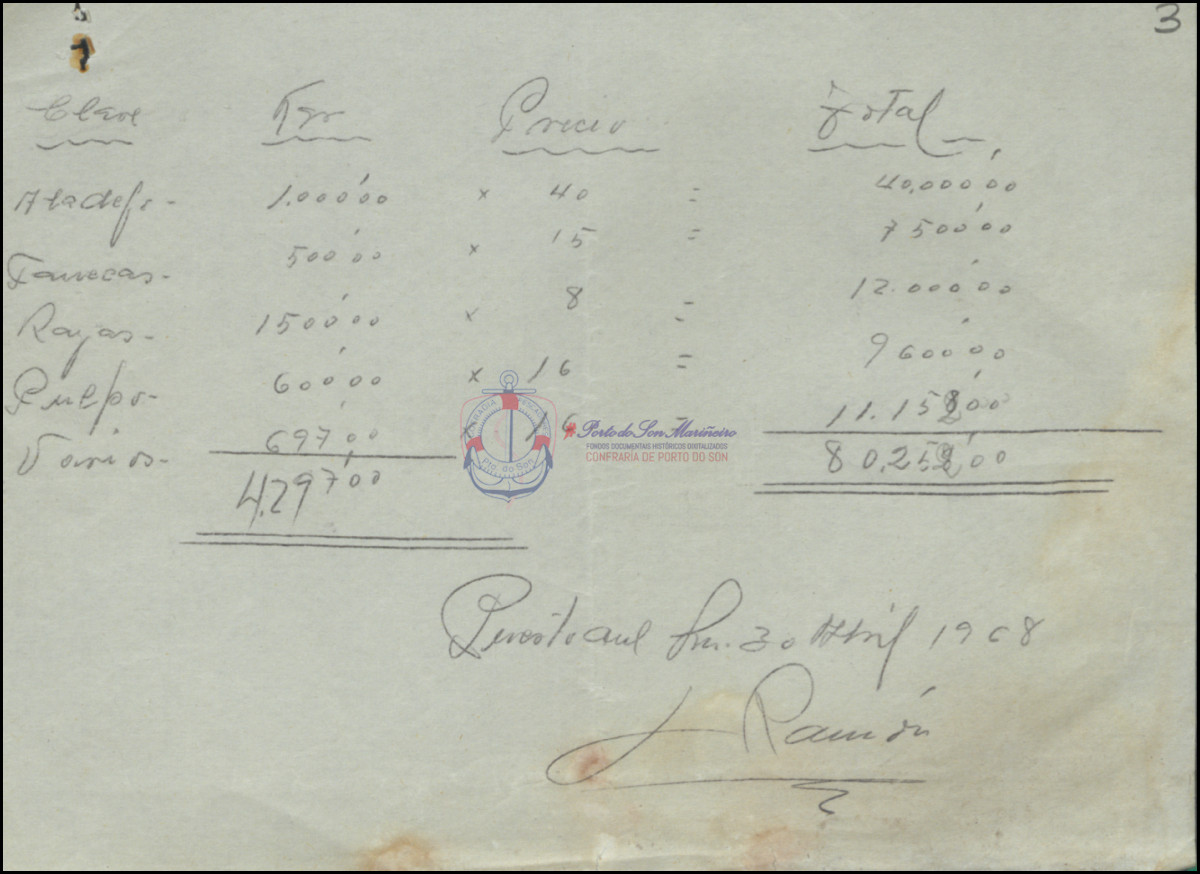 3
Clase Kgr Precio Total
1.000'00 x 40 = 40.000'00
Fanecas- 500'00 x 15 = 7500'00
Rayas- 1500'00 x 8 = 12.000'00
Pulpo- 600'00 x 16 = 9600'00
Varios- 697'00 x 16 = 11.152'00
4.297'00 80.252'00
Porto do Son Mariñeiro
FONDOS DOCUMENTAIS HISTÓRICOS DIGITALIZADOS
CONFRARÍA DE PORTO DO SON
Pto. do Son
30 Abril 1968
Ramón